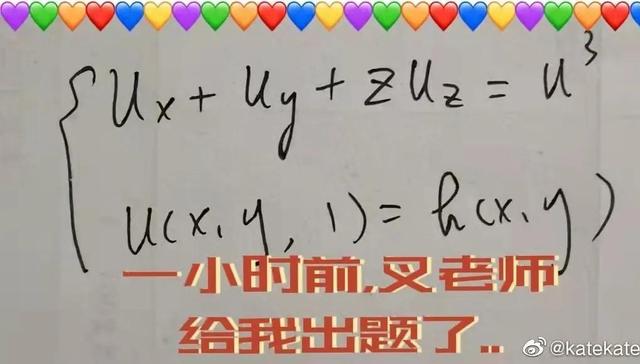 u_x + u_y + z u_z = u^3
u(x, y, 1) = h(x, y)
一小时前,叉老师
给我出题了..
@katekate